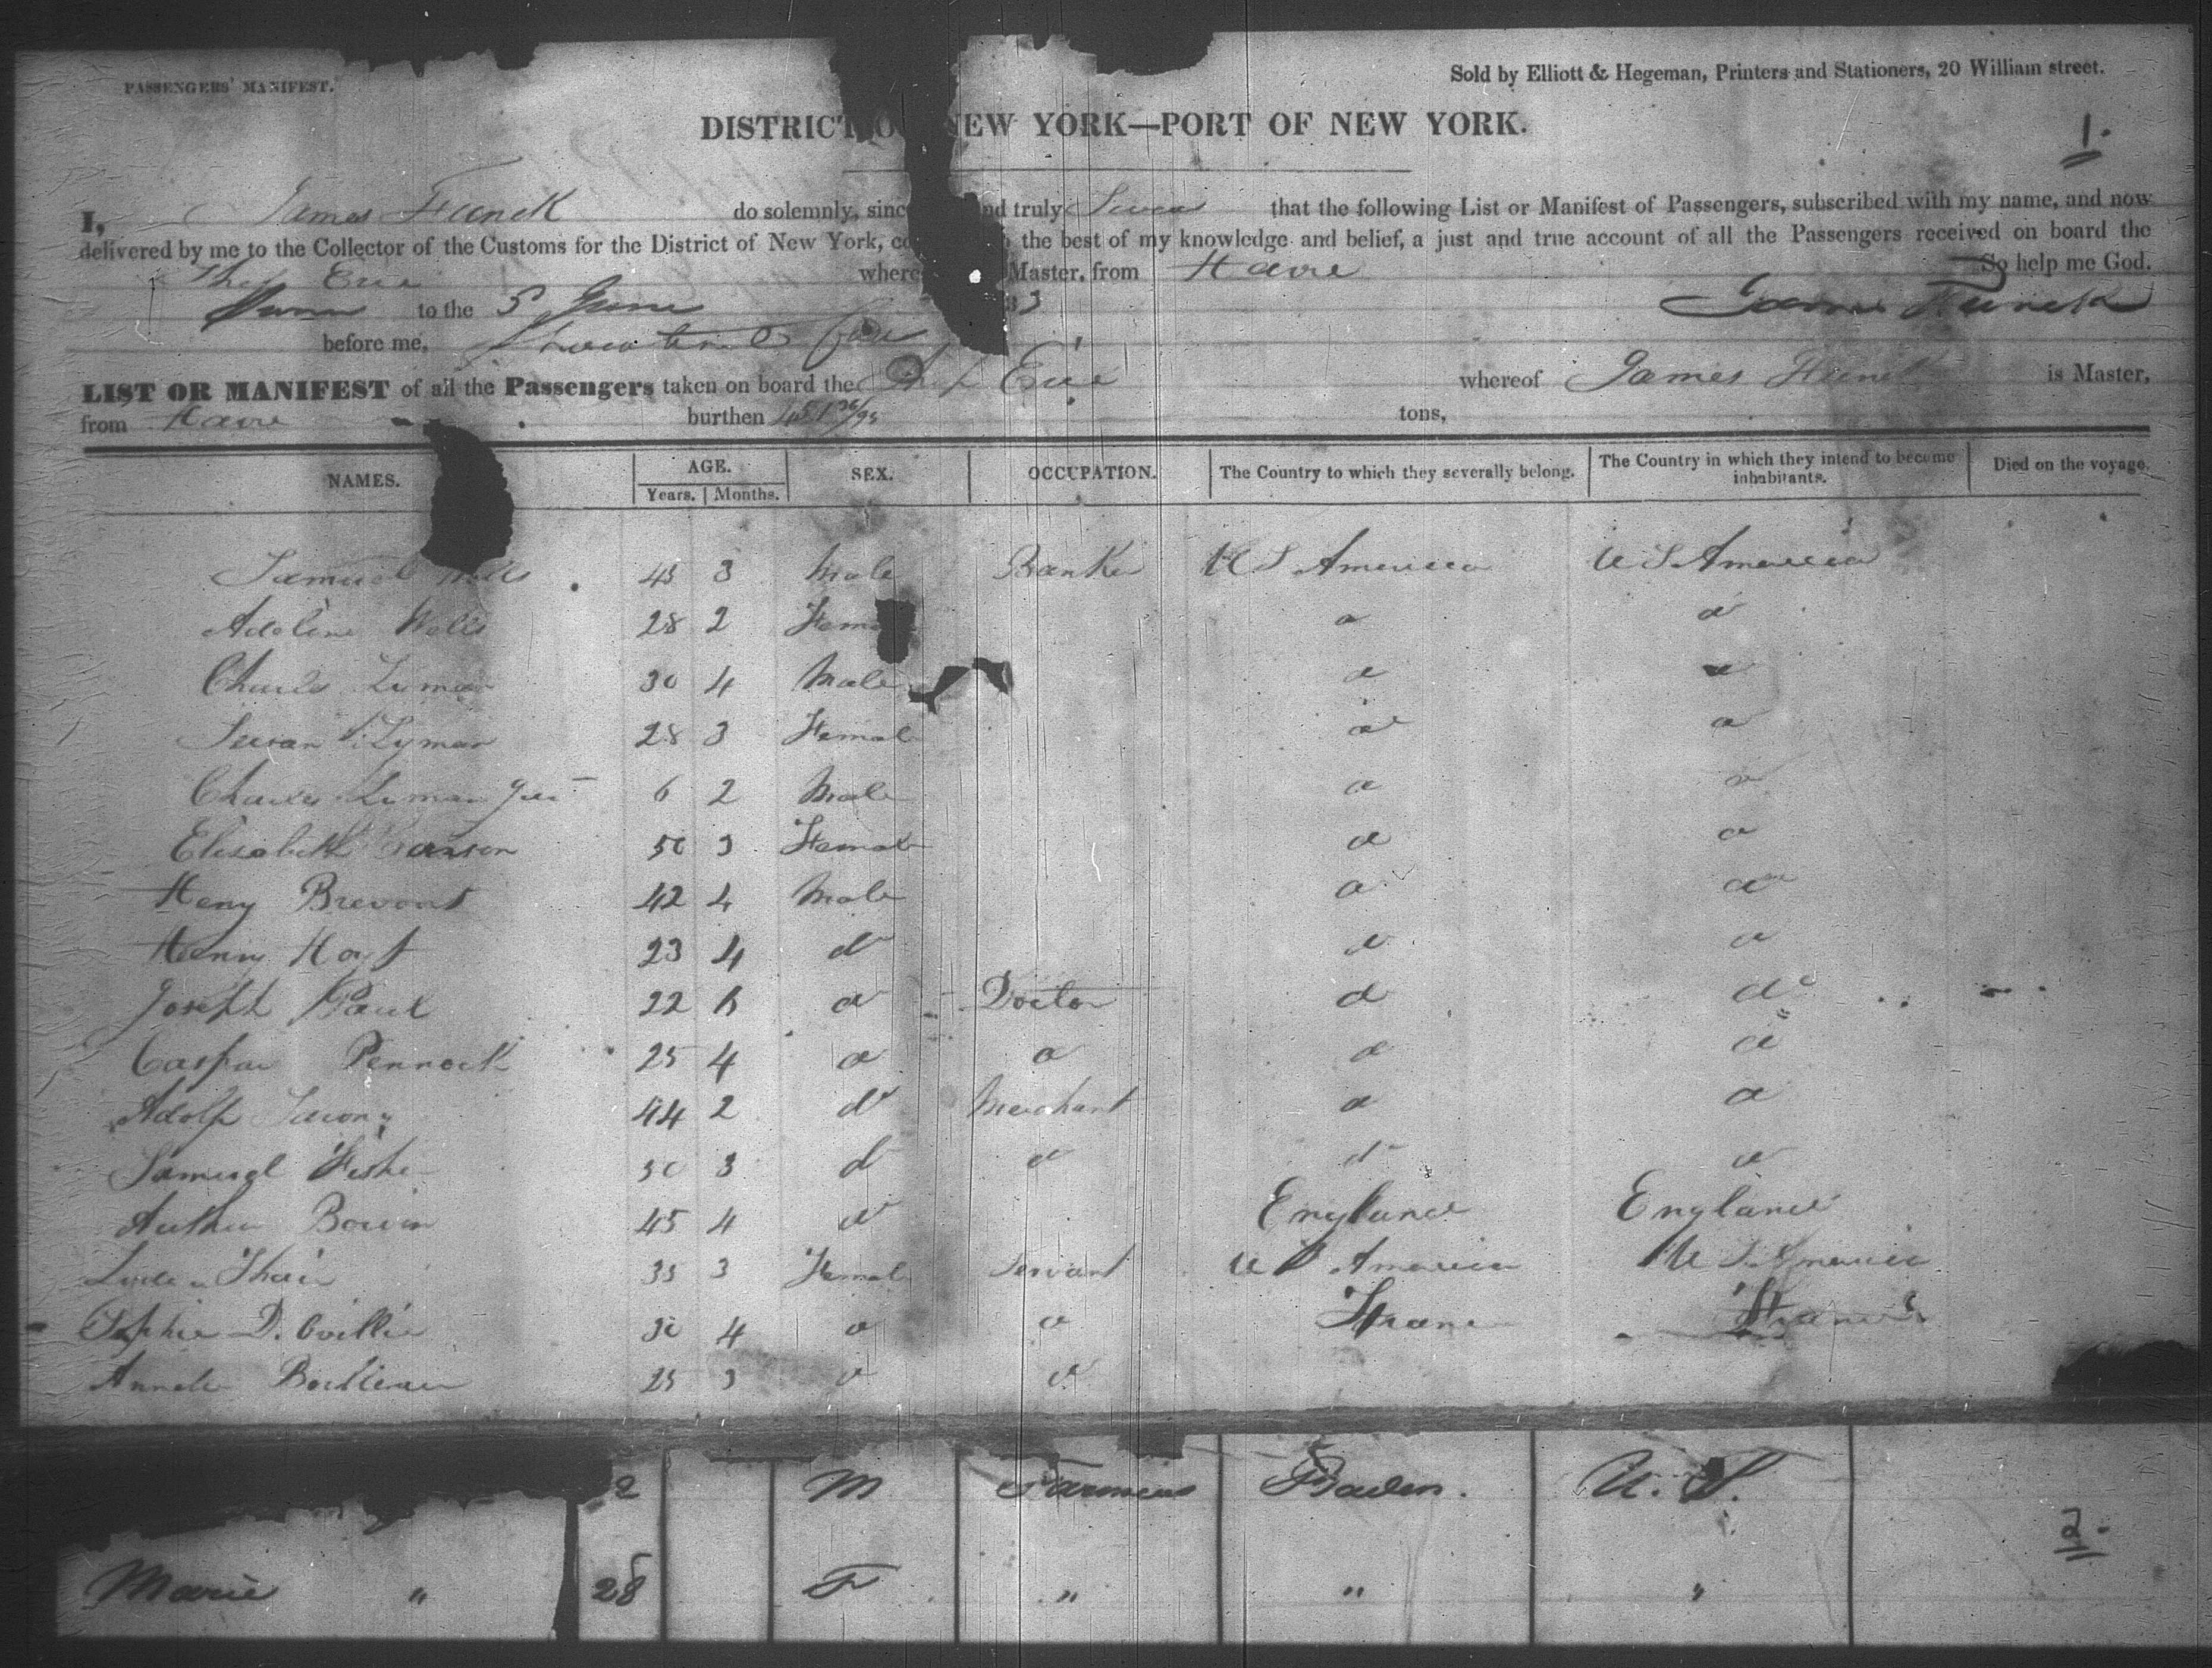 PASSENGERS' MANIFEST.
Sold by Elliott & Hegeman, Printers and Stationers, 20 William street.
DISTRICT O NEW YORK—PORT OF NEW YORK.
1.
I, James Funck do solemnly, sinc nd truly Swear that the following List or Manifest of Passengers, subscribed with my name, and now
delivered by me to the Collector of the Customs for the District of New York, co the best of my knowledge and belief, a just and true account of all the Passengers received on board the
Ship Erie where Master, from Havre So help me God.
Sworn to the 5 June 33 James Funck
before me,
LIST OR MANIFEST of all the Passengers taken on board the Ship Erie whereof James Funck is Master,
from Havre burthen 451 36/95 tons,
NAMES. AGE. SEX. OCCUPATION. The Country to which they severally belong. The Country in which they intend to become inhabitants. Died on the voyage.
Years. Months.
Samuel 45 3 Male Banker U S America U S America
Adeline Wells 28 2 Fema d d
Charles Lyman 30 4 Male d d
Susan Lyman 28 3 Female d d
Charles Lyman Jun 6 2 Male d d
Elisabeth 50 3 Female d d
Heny Brevoort 42 4 Male d d
Henry Hoyt 23 4 d d d
Joseph Paul 22 6 d Doctor d d
Caspar Pennock 25 4 d d d d
Adolf 44 2 d Merchant d d
Samuel Fisher 50 3 d d d d
45 4 d England England
35 3 Female Servant U S America U S America
Sophie 30 4 d d France France
25 3 d d
2 M Farmers Baden. U. S.
2.
Marie " 28 F " " "